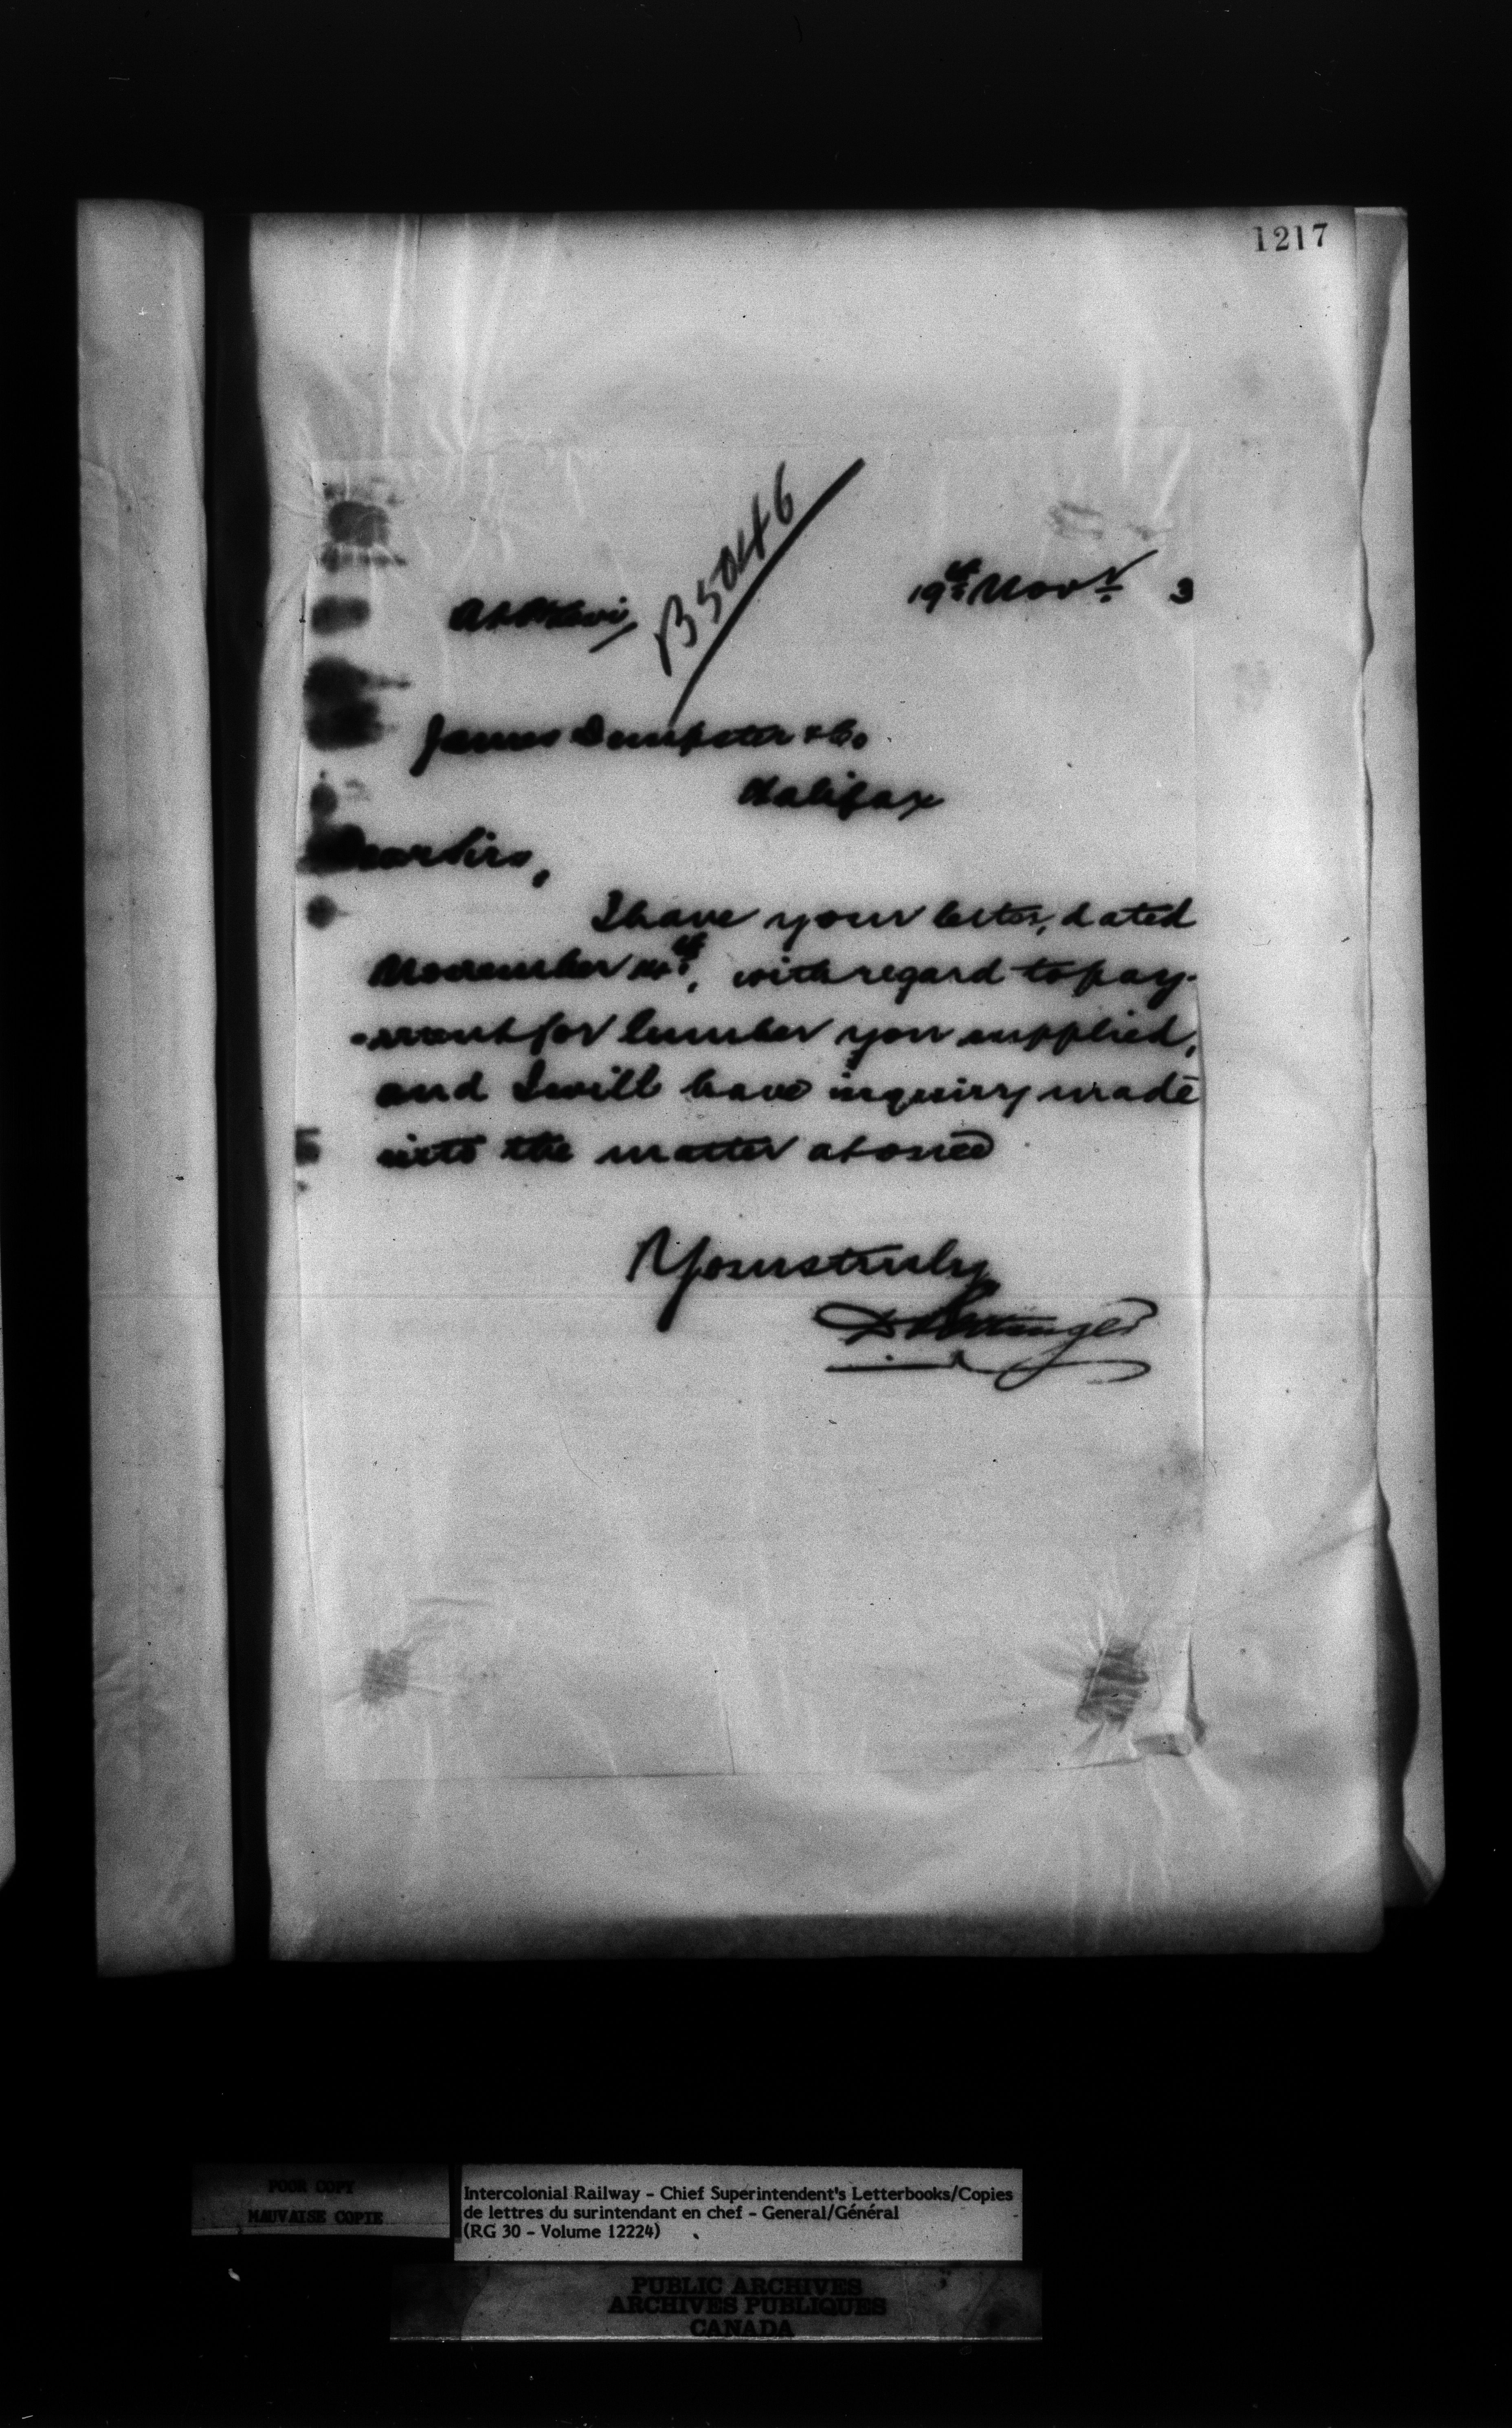 1217
B 50446
19th Novr. 3
James Dempster & Co.
Halifax
Dear Sirs,
I have your letter, dated
November 14th, with regard to pay-
-ment for lumber you supplied,
and I will have inquiry made
into the matter at once
Yours truly
D Pottinger
POOR COPY
MAUVAISE COPIE
Intercolonial Railway - Chief Superintendent's Letterbooks/Copies
de lettres du surintendant en chef - General/Général
(RG 30 - Volume 12224)
PUBLIC ARCHIVES
ARCHIVES PUBLIQUES
CANADA